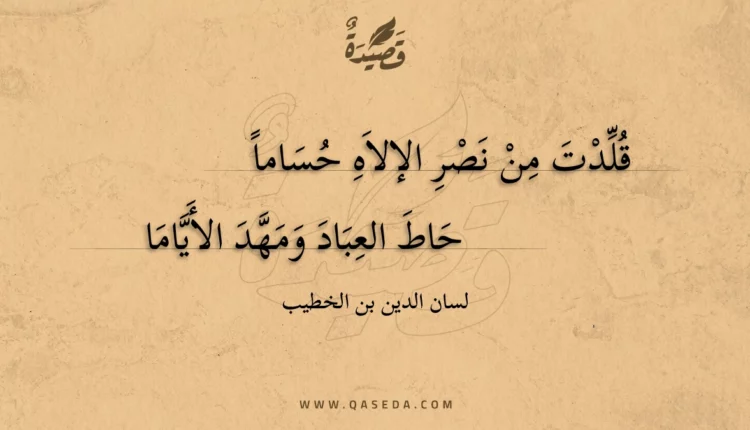 قَصِيْدَةٌ
قُلِّدْتَ مِنْ نَصْرِ الإلاَهِ حُسَاماً
حَاطَ العِبَادَ وَمَهَّدَ الأَيَّامَا
لسان الدين بن الخطيب
WWW.QASEDA.COM